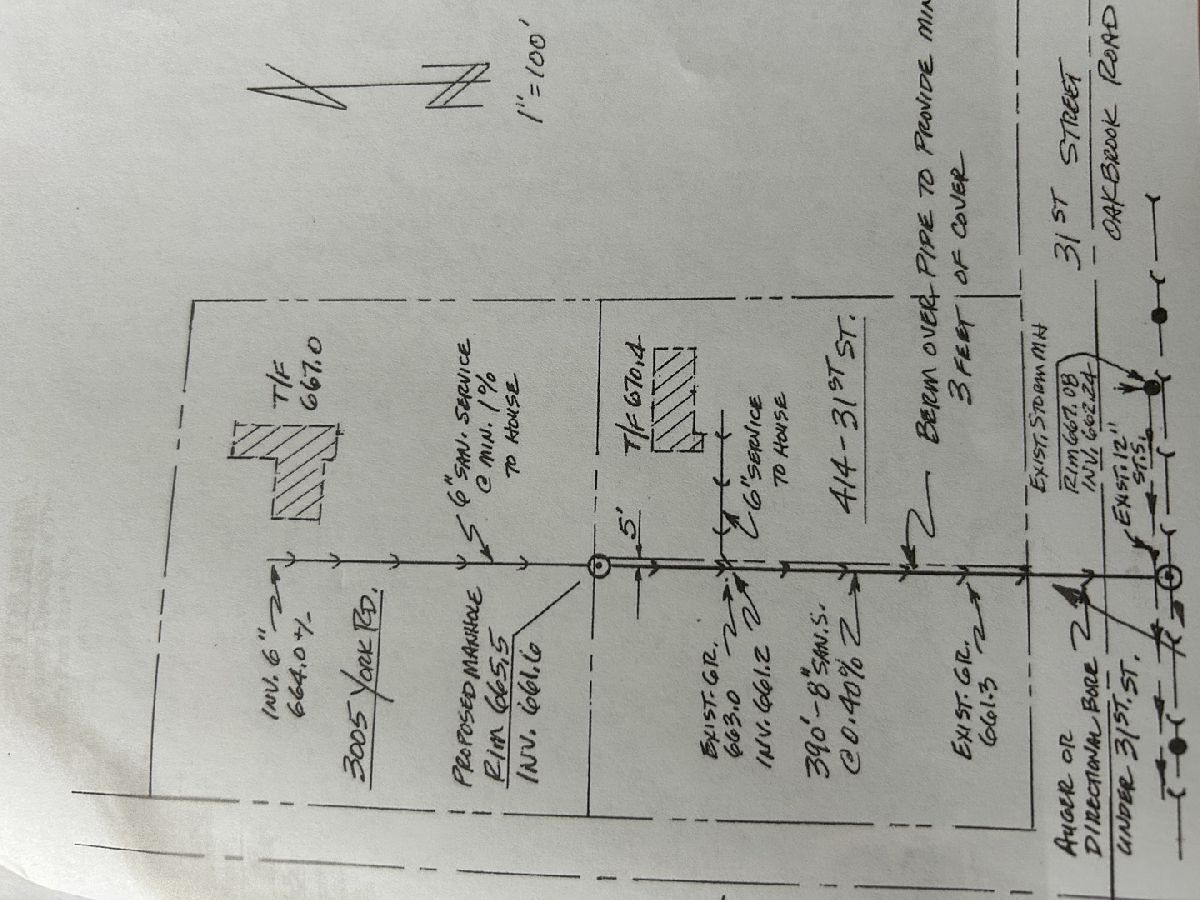 N
1"=100'
T/F
667.0
INV. 6"
664.0+/-
6" SAN. SERVICE
@ MIN. 1%
TO HOUSE
3005 YORK RD.
PROPOSED MANHOLE
RIM 665.5
INV. 661.6
5'
T/F 670.4
6" SERVICE
TO HOUSE
414-31ST ST.
EXIST. GR.
663.0
INV. 661.2
390'-8" SAN. S.
@ 0.40%
BERM OVER PIPE TO PROVIDE MIN
3 FEET OF COVER
EXIST. GR.
661.3
EXIST. STORM MH
RIM 667.08
INV. 662.24
EXIST. 12"
ST. S.
31ST STREET
OAKBROOK ROAD
AUGER OR
DIRECTIONAL BORE
UNDER 31ST. ST.